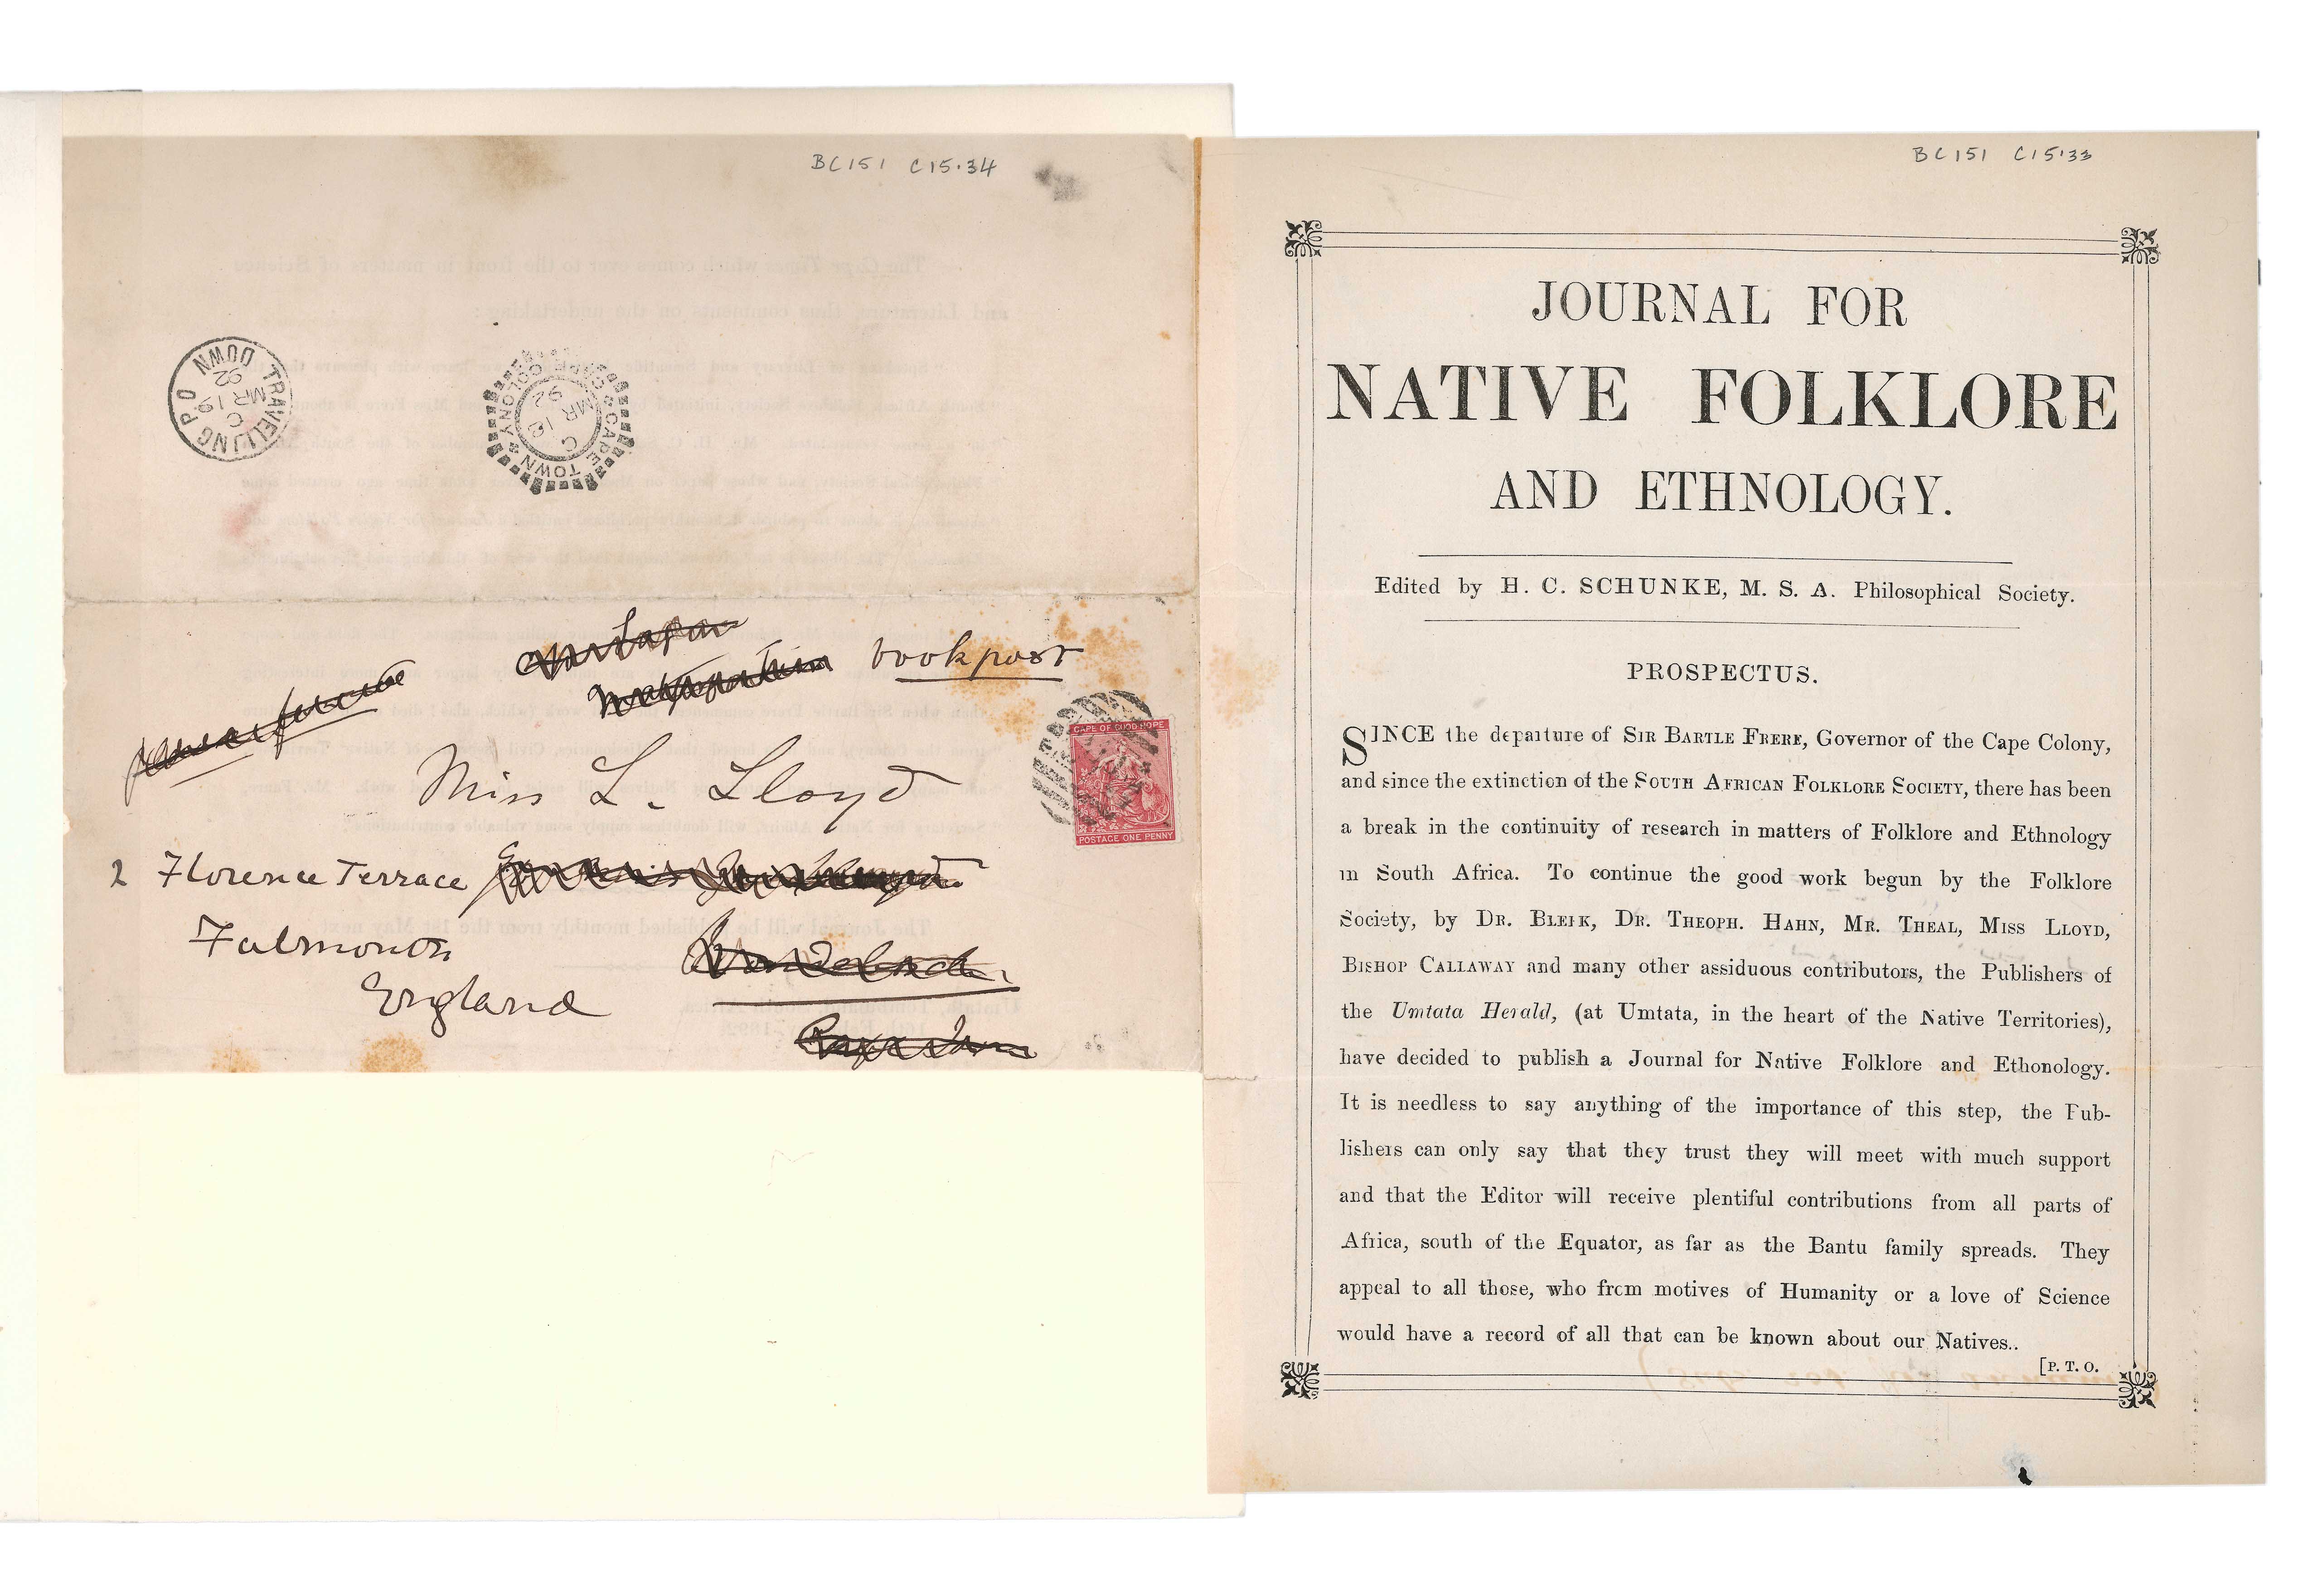 BC151 C15.34
TRAVELLING P.O DOWN
C
MR 19
92
CAPE TOWN CAPE COLONY
C
MR 19
92
bookpost
CAPE OF GOOD HOPE
POSTAGE ONE PENNY
Miss L. Lloyd
2 Florence Terrace
Falmouth
England
BC151 C15.33
JOURNAL FOR
NATIVE FOLKLORE
AND ETHNOLOGY.
Edited by H. C. SCHUNKE, M. S. A. Philosophical Society.
PROSPECTUS.
SINCE the departure of SIR BARTLE FRERE, Governor of the Cape Colony,
and since the extinction of the SOUTH AFRICAN FOLKLORE SOCIETY, there has been
a break in the continuity of research in matters of Folklore and Ethnology
in South Africa. To continue the good work begun by the Folklore
Society, by DR. BLEIK, DR. THEOPH. HAHN, MR. THEAL, MISS LLOYD,
BISHOP CALLAWAY and many other assiduous contributors, the Publishers of
the Umtata Herald, (at Umtata, in the heart of the Native Territories),
have decided to publish a Journal for Native Folklore and Ethonology.
It is needless to say anything of the importance of this step, the Pub-
lishers can only say that they trust they will meet with much support
and that the Editor will receive plentiful contributions from all parts of
Africa, south of the Equator, as far as the Bantu family spreads. They
appeal to all those, who from motives of Humanity or a love of Science
would have a record of all that can be known about our Natives..
[P. T. O.